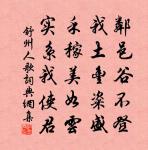 鄰邑谷不登
我土豊粢盛
禾稼美如雲
实系我使君
舒州人歌詞典網集